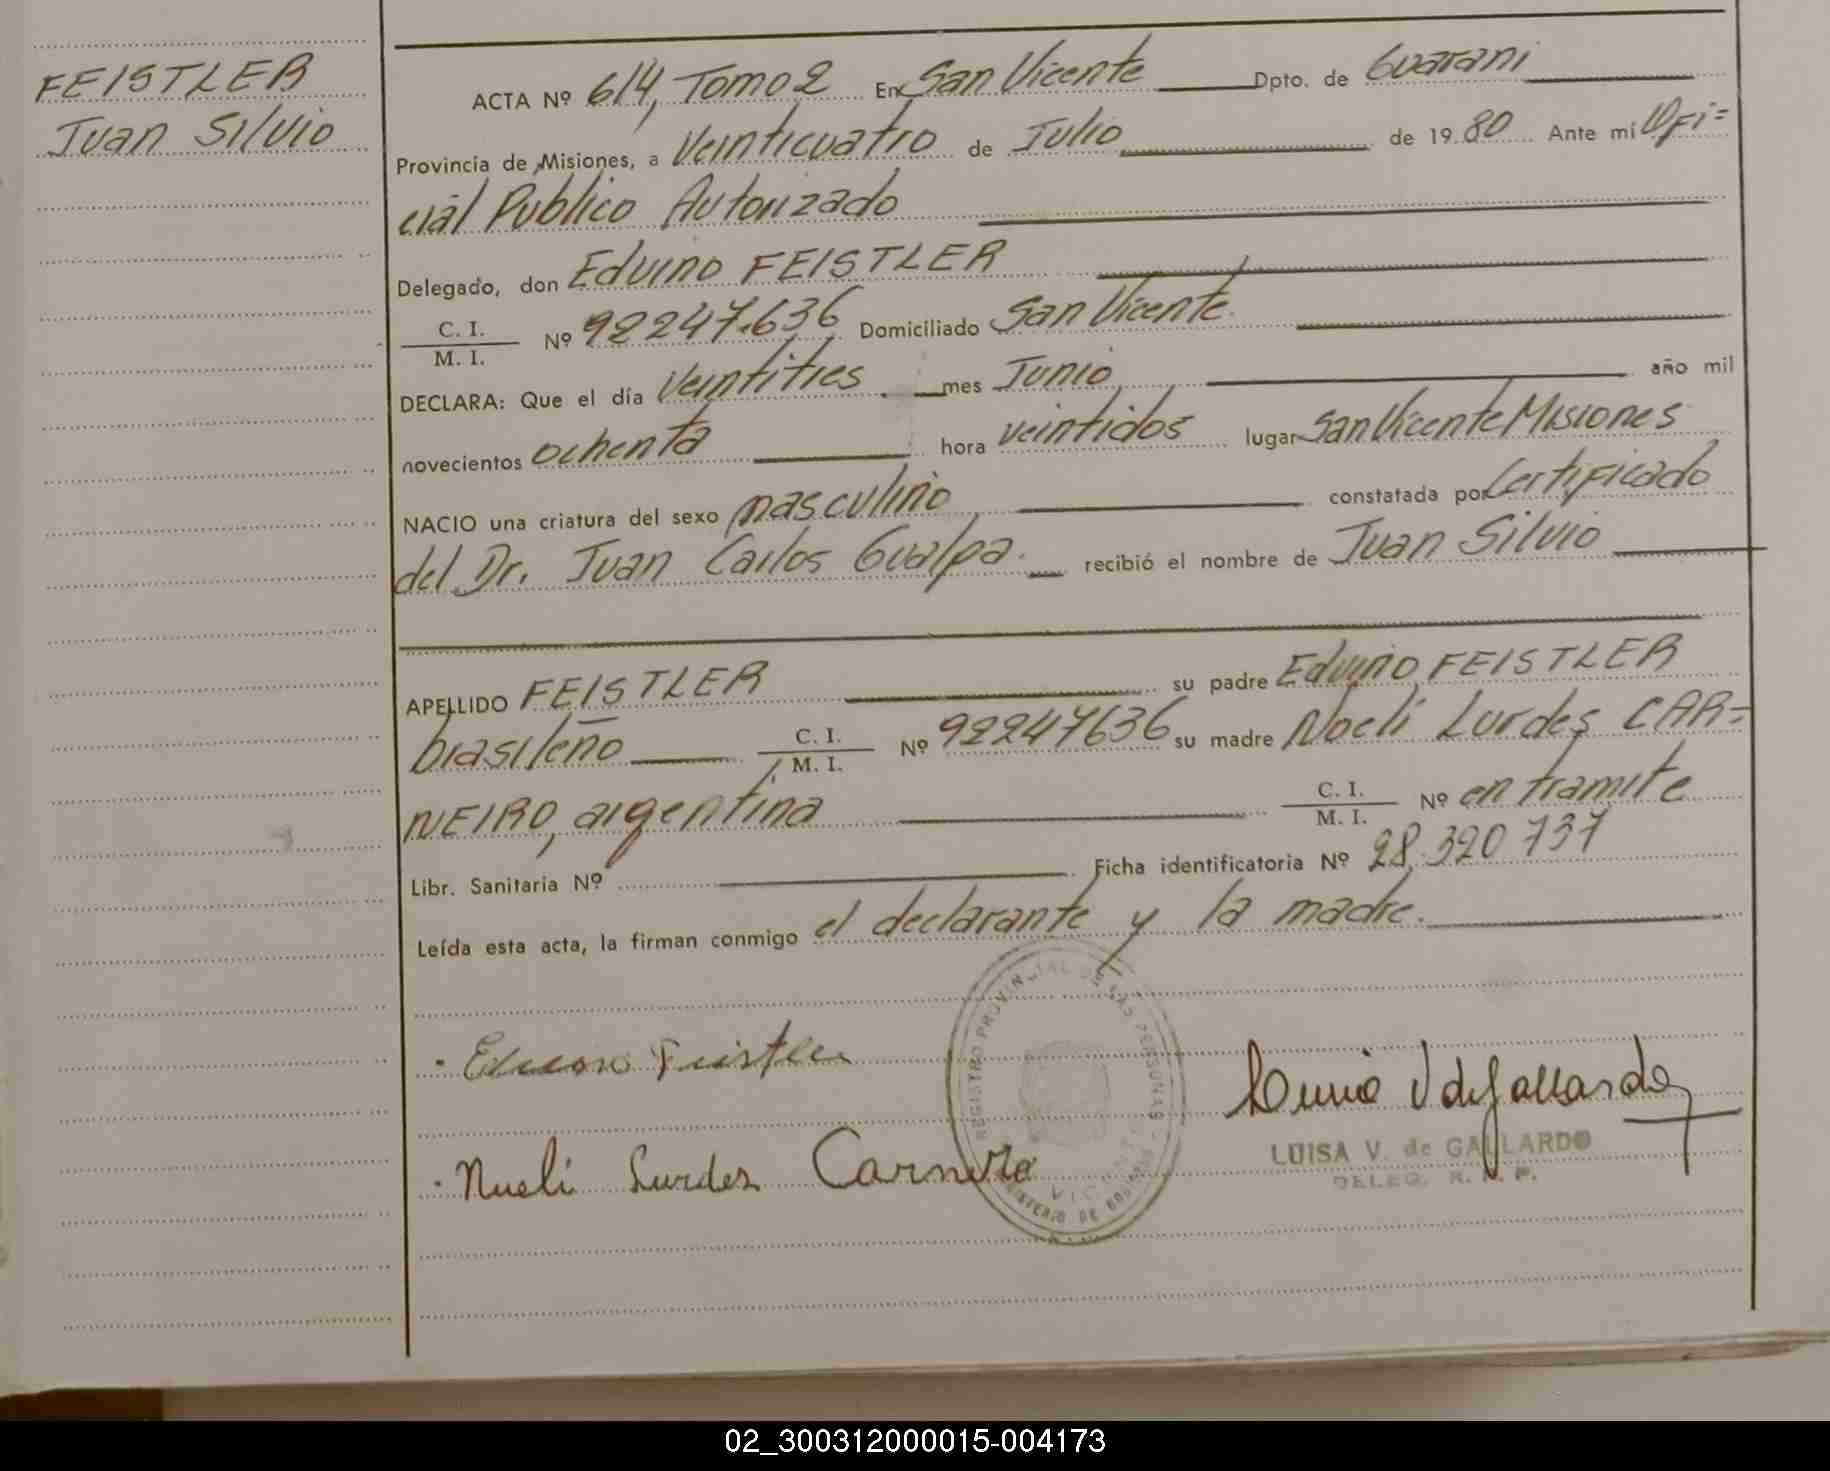 FEISTLER
Juan Silvio
ACTA Nº 614, Tomo 2 En San Vicente Dpto. de Guarani
Provincia de Misiones, a Veinticuatro de Julio de 1980 Ante mi Ofi=
cial Publico Autorizado
Delegado, don Eduino FEISTLER
C. I. / M. I. Nº 92247.636 Domiciliado San Vicente.
DECLARA: Que el día Veintitres mes Junio año mil
novecientos ochenta hora veintidos lugar San Vicente Misiones
NACIO una criatura del sexo masculino constatada por Certificado
del Dr. Juan Carlos Gualpa. recibió el nombre de Juan Silvio
APELLIDO FEISTLER su padre Eduino FEISTLER
brasileño C. I. / M. I. Nº 92247636 su madre Noeli Lurdes CAR=
NEIRO, argentina C. I. / M. I. Nº en tramite
Libr. Sanitaria Nº Ficha identificatoria Nº 28.320 737
Leída esta acta, la firman conmigo el declarante y la madre.
REGISTRO PROVINCIAL DE LAS PERSONAS
Eduino Feistler
Nueli Lurdes
LUISA V. de GALLARDO
DELEG. R. P. P.
02_300312000015-004173